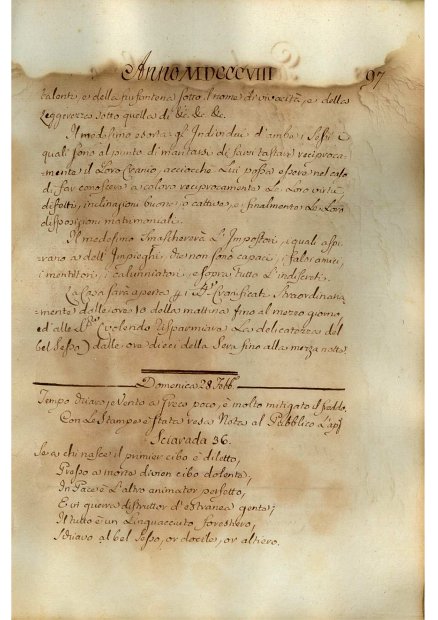 Anno MDCCCVIII
97
talenti, e della piu sotto il nome di vivacità, e della
leggerezza sotto quella di &c. &c. &c.
Il medesimo esorta gl' Individui d'ambi i Sessi i
quali sono al punto di maritarsi di farsi tastar reciproca-
mente il Loro Cranio, acciocche Lui possa essere nel caso
di far conoscere a coloro reciprocamente Le Loro virtù
difetti, inclinazioni buone, o cattive, e finalmente Le Loro
disposizioni matrimoniali.
Il medesimo Smaschererà L'Impostori, i quali aspi-
rano a dell' Impieghi, che non sono capaci, i falsi amici,
i mentitori, i calunniatori, e sopra tutto L'indiscreti.
La Casa sarà aperta straordinaria
mente dalle ore 10 della mattina fino al mezzo giorno,
ed alle (volendo risparmiare La delicatezza del
bel Sesso) dalle ore dieci della Sera fino alla mezza notte.
Domenica 28 Febb.
Tempo vento a Greco poco, e molto mitigato il freddo.
Con Le Stampe è stata resa Nota al Pubblico L'app.
Sciarada 36.
Se a chi nasce il primier cibo è diletto,
Presso a morte divien cibo dolente;
In Pace è L'altro animator perfetto,
E in guerra distruttor d'estranea gente;
Il tutto è un Linguacciuto forestiero,
al bel Sesso, or docile, or altiero.